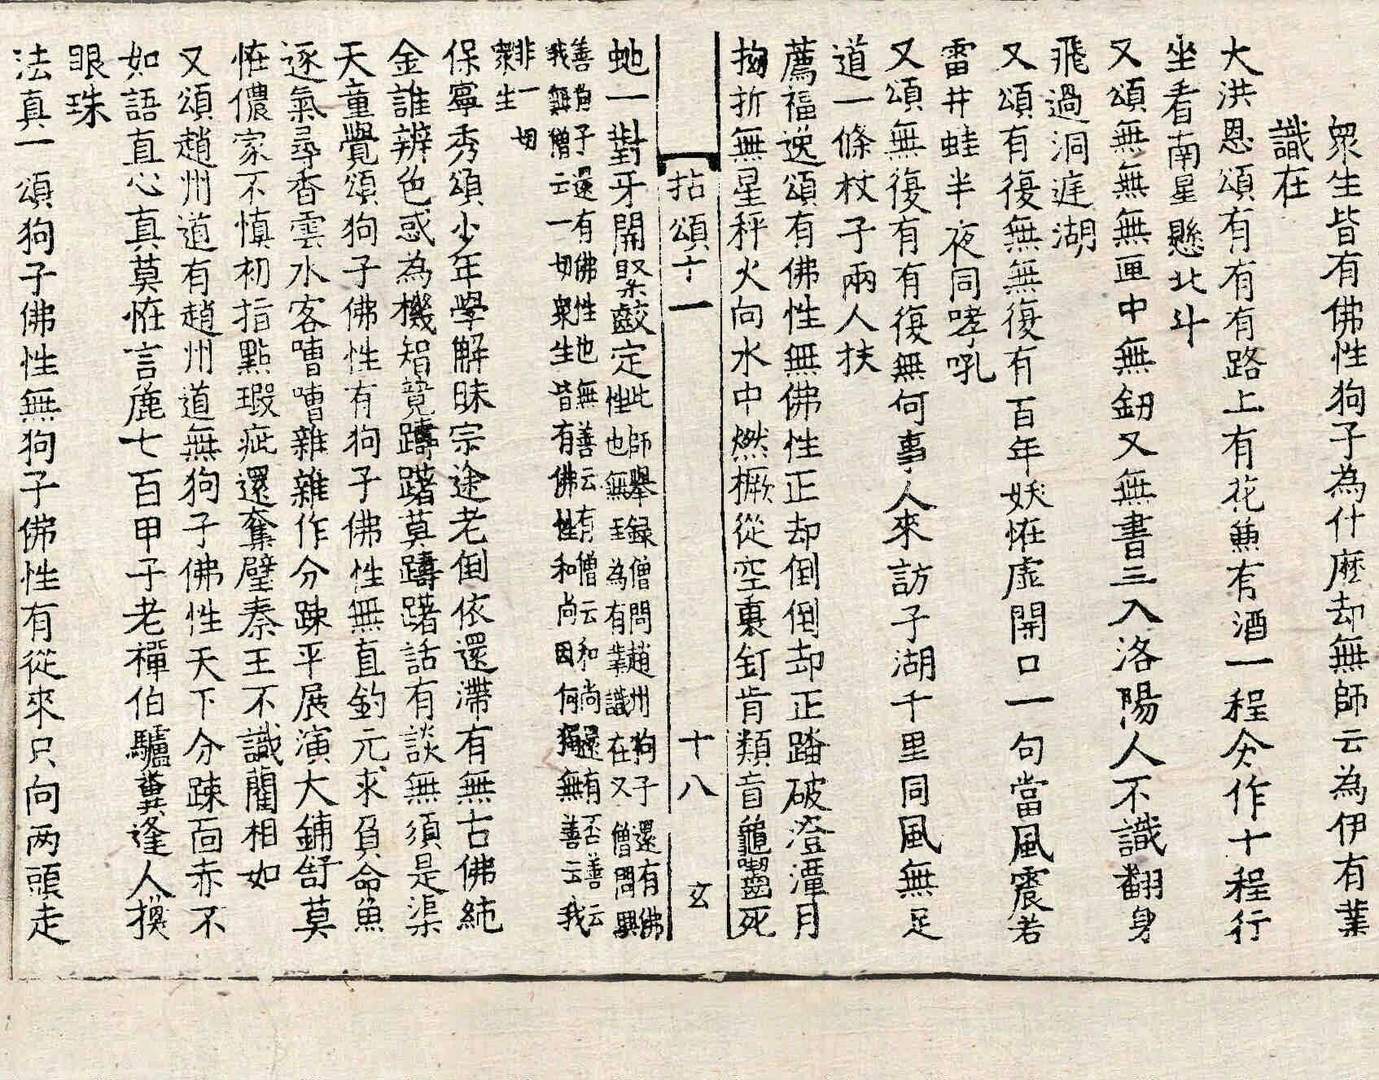 眾生皆有佛性狗子為什麽却無師云為伊有業
識在
大洪恩頌有有有路上有花兼有酒一程分作十程行
坐看南星懸北斗
又頌無無無匣中無劒又無書三入洛陽人不識翻身
飛過洞庭湖
又頌有復無無復有百年妖恠虛開口一句當風震若
雷井蛙半夜同哮吼
又頌無復有有復無何事人來訪子湖千里同風無足
道一條杖子兩人扶
薦福逸頌有佛性無佛性正却倒倒却正踏破澄潭月
拗折無星秤火向水中燃橛從空裏釘肯類盲龜齧死
拈頌十一 十八 玄
虵一對牙開堅齩定此師舉錄僧問趙州狗子還有佛
性也無 為有業識在又僧問興
善狗子還有佛性也無善云有僧云和尚還有否善云
我無僧云一切眾生皆有佛性和尚因何獨無善云我
非一切
眾生
保寧秀頌少年學解昧宗途老倒依還滯有無古佛純
金誰辨色惑為機智競躊躇莫躊躇話有談無須是渠
天童覺頌狗子佛性有狗子佛性無直釣元求負命魚
逐氣尋香雲水客嘈嘈雜雜作分踈平展演大鋪舒莫
恠儂家不慎初指點瑕疵還奪璧秦王不識藺相如
又頌趙州道有趙州道無狗子佛性天下分踈面赤不
如語直心真莫恠言麁七百甲子老禪伯驢糞逢人換
眼珠
法真一頌狗子佛性無狗子佛性有從來只向两頭走